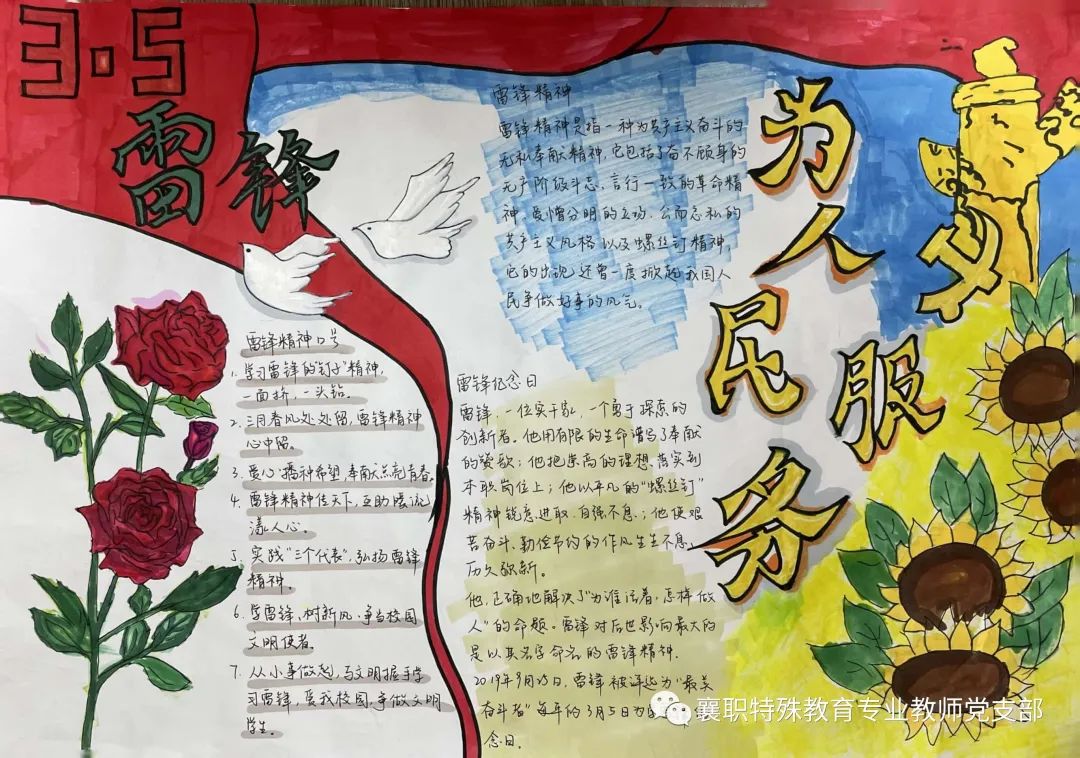 3·5
雷锋
雷锋精神口号
1. 学习雷锋的"钉子"精神,
一面挤,一头钻。
2. 三月春风处处留,雷锋精神
心中留。
3. 爱心播种希望,奉献点亮青春。
4. 雷锋精神传天下,互助暖流
漾人心。
5. 实践"三个代表",弘扬雷锋
精神。
6. 学雷锋,树新风,争当校园
文明使者。
7. 从小事做起,与文明握手学
习雷锋,爱我校园,争做文明
学生。
雷锋精神
雷锋精神是指一种为共产主义奋斗的
无私奉献精神,它包括了奋不顾身的
无产阶级斗志、言行一致的革命精
神、爱憎分明的立场、公而忘私的
共产主义风格以及螺丝钉精神,
它的出现还曾一度掀起我国人
民争做好事的风气。
雷锋纪念日
雷锋,一位实干家,一个勇于探索的
创新者。他用有限的生命谱写了奉献
的赞歌;他把崇高的理想、落实到
本职岗位上;他以平凡的"螺丝钉"
精神锐意进取、自强不息;他使艰
苦奋斗、勤俭节约的作风生生不息,
历久弥新。
他,正确地解决了"为谁活着,怎样做
人"的命题。雷锋对后世影响最大的
是以其名字命名的雷锋精神.
2019年9月25日,雷锋被评选为"最美
奋斗者"每年的3月5日为
念日。
为人民服务
襄职特殊教育专业教师党支部